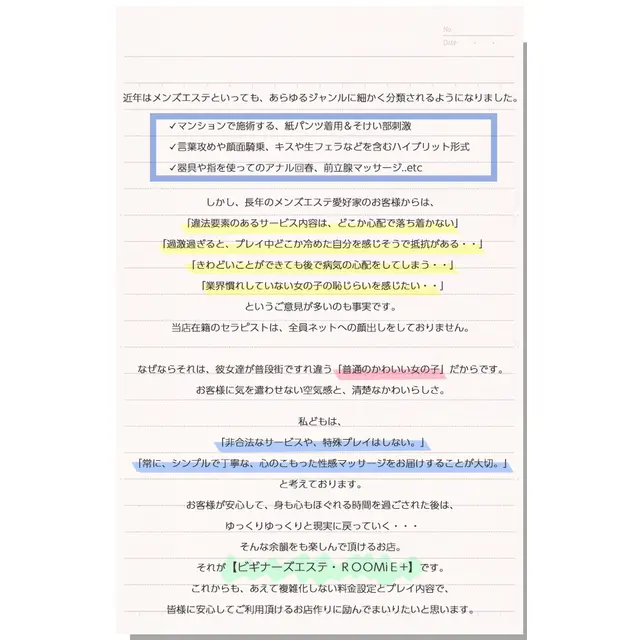 No
Date
近年はメンズエステといっても、あらゆるジャンルに細かく分類されるようになりました。
✓マンションで施術する、紙パンツ着用＆そけい部刺激
✓言葉攻めや顔面騎乗、キスや生フェラなどを含むハイブリット形式
✓器具や指を使ってのアナル回春、前立腺マッサージ..etc
しかし、長年のメンズエステ愛好家のお客様からは、
「違法要素のあるサービス内容は、どこか心配で落ち着かない」
「過激過ぎると、プレイ中どこか冷めた自分を感じそうで抵抗がある・・」
「きわどいことができても後で病気の心配をしてしまう・・」
「業界慣れしていない女の子の恥じらいを感じたい・・」
というご意見が多いのも事実です。
当店在籍のセラピストは、全員ネットへの顔出しをしておりません。
なぜならそれは、彼女達が普段街ですれ違う「普通のかわいい女の子」だからです。
お客様に気を遣わせない空気感と、清楚なかわいらしさ。
私どもは、
「非合法なサービスや、特殊プレイはしない。」
「常に、シンプルで丁寧な、心のこもった性感マッサージをお届けすることが大切。」
と考えております。
お客様が安心して、身も心もほぐれる時間を過ごされた後は、
ゆっくりゆっくりと現実に戻っていく・・・
そんな余韻をも楽しんで頂けるお店。
それが【ビギナーズエステ・ＲＯＯＭｉＥ＋】です。
これからも、あえて複雑化しない料金設定とプレイ内容で、
皆様に安心してご利用頂けるお店作りに励んでまいりたいと思います。